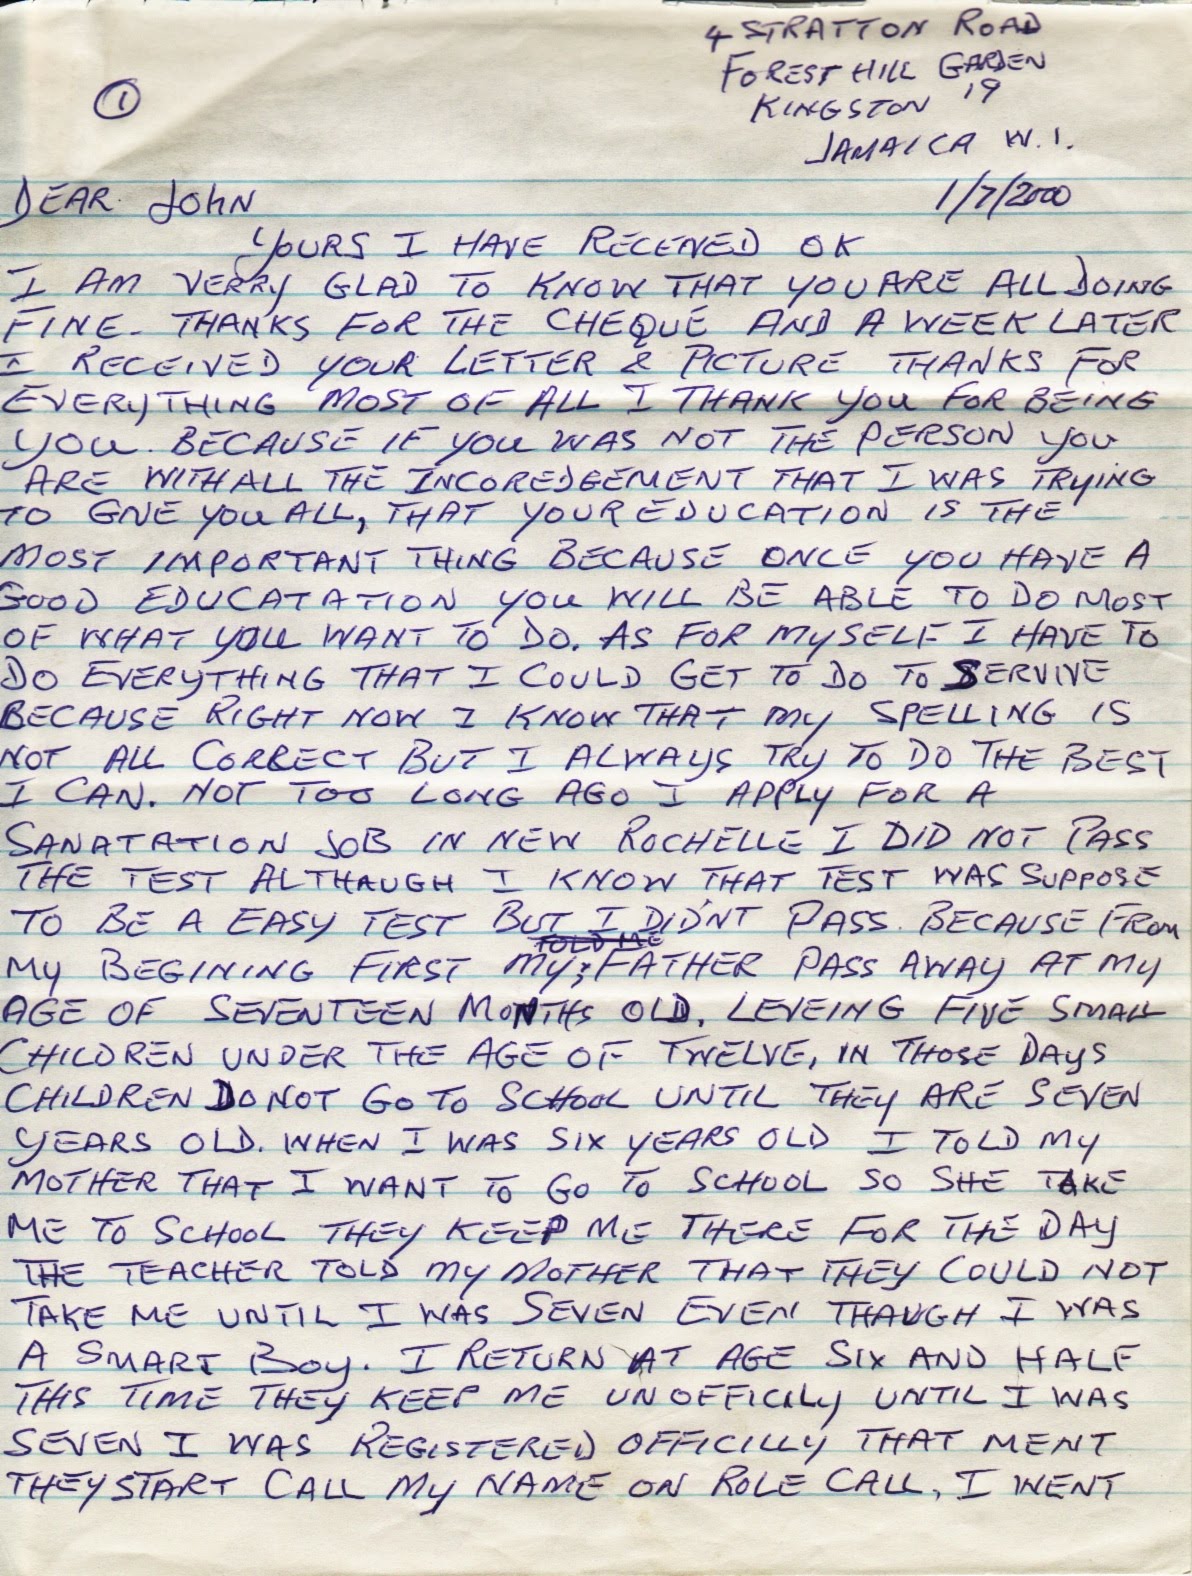 4 STRATTON ROAD
FOREST HILL GARDEN
KINGSTON 19
JAMAICA W.I.
①
1/7/2000
DEAR JOHN
YOURS I HAVE RECEIVED OK
I AM VERRY GLAD TO KNOW THAT YOU ARE ALL DOING
FINE. THANKS FOR THE CHEQUE AND A WEEK LATER
I RECEIVED YOUR LETTER & PICTURE THANKS FOR
EVERYTHING MOST OF ALL I THANK YOU FOR BEING
YOU. BECAUSE IF YOU WAS NOT THE PERSON YOU
ARE WITH ALL THE INCOREDGEMENT THAT I WAS TRYING
TO GIVE YOU ALL, THAT YOUR EDUCATION IS THE
MOST IMPORTANT THING BECAUSE ONCE YOU HAVE A
GOOD EDUCATATION YOU WILL BE ABLE TO DO MOST
OF WHAT YOU WANT TO DO. AS FOR MYSELF I HAVE TO
DO EVERYTHING THAT I COULD GET TO DO TO SERVIVE
BECAUSE RIGHT NOW I KNOW THAT MY SPELLING IS
NOT ALL CORRECT BUT I ALWAYS TRY TO DO THE BEST
I CAN. NOT TOO LONG AGO I APPLY FOR A
SANATATION JOB IN NEW ROCHELLE I DID NOT PASS
THE TEST ALTHAUGH I KNOW THAT TEST WAS SUPPOSE
TO BE A EASY TEST BUT I DID'NT PASS. BECAUSE FROM
TOLD ME
MY BEGINING FIRST MY FATHER PASS AWAY AT MY
AGE OF SEVENTEEN MONTHS OLD. LEVEING FIVE SMALL
CHILDREN UNDER THE AGE OF TWELVE, IN THOSE DAYS
CHILDREN DO NOT GO TO SCHOOL UNTIL THEY ARE SEVEN
YEARS OLD. WHEN I WAS SIX YEARS OLD I TOLD MY
MOTHER THAT I WANT TO GO TO SCHOOL SO SHE TAKE
ME TO SCHOOL THEY KEEP ME THERE FOR THE DAY
THE TEACHER TOLD MY MOTHER THAT THEY COULD NOT
TAKE ME UNTIL I WAS SEVEN EVEN THAUGH I WAS
A SMART BOY. I RETURN AT AGE SIX AND HALF
THIS TIME THEY KEEP ME UNOFFICILY UNTIL I WAS
SEVEN I WAS REGISTERED OFFICILLY THAT MENT
THEY START CALL MY NAME ON ROLE CALL, I WENT